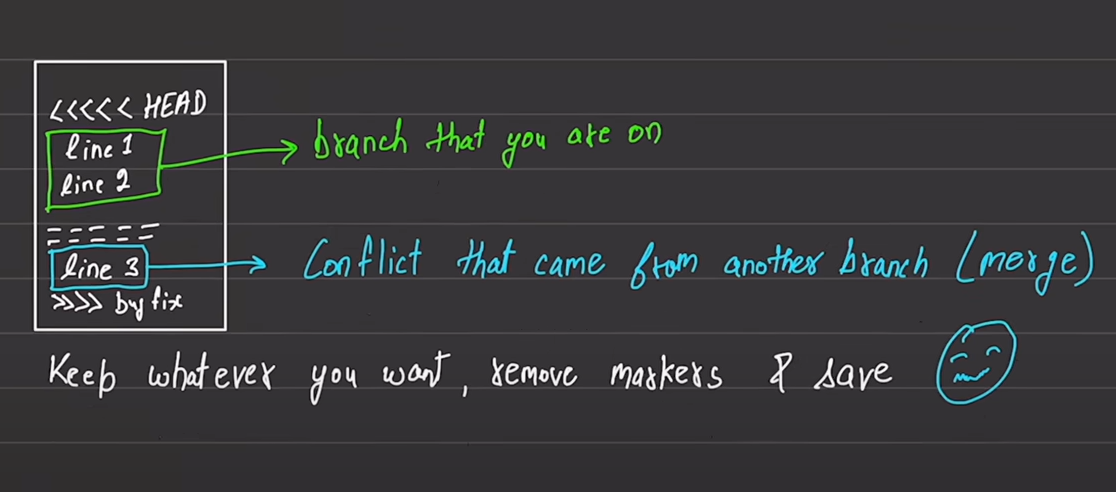 <<<<< HEAD
line 1
line 2
branch that you are on
=====
line 3
Conflict that came from another branch (merge)
>>>> by fix
Keep whatever you want, remove markers & save